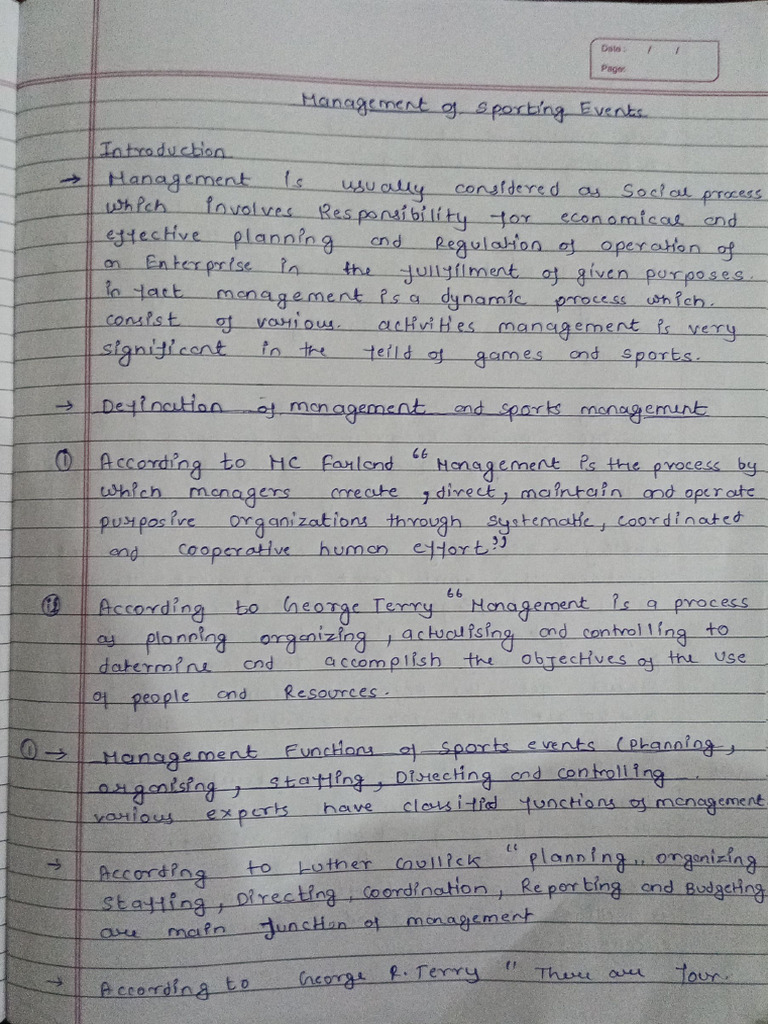 Date : / /
Page:
Management of Sporting Events
Introduction
→ Management is usually considered as Social process
which involves Responsibility for economical and
effective planning and Regulation of operation of
an Enterprise in the fullfilment of given purposes.
in fact management is a dynamic process which.
consist of various. activities management is very
significant in the feild of games and sports.
→ Defination of management and sports management
(i) According to MC Farland “Management is the process by
which managers create, direct, maintain and operate
purposive organizations through systematic, coordinated
and cooperative human effort”
(ii) According to George Terry “Management is a process
as planning organizing, actualising and controlling to
datermine and accomplish the objectives of the use
of people and Resources.
(1) → Management Functions of sports events (planning,
organising, staffing, Directing and controlling.
various experts have classified functions of management
→ According to Luther Gullick “planning,, organizing
Staffing, Directing, coordination, Reporting and Budgeting
are main function of management
→ According to George R. Terry “There are four.